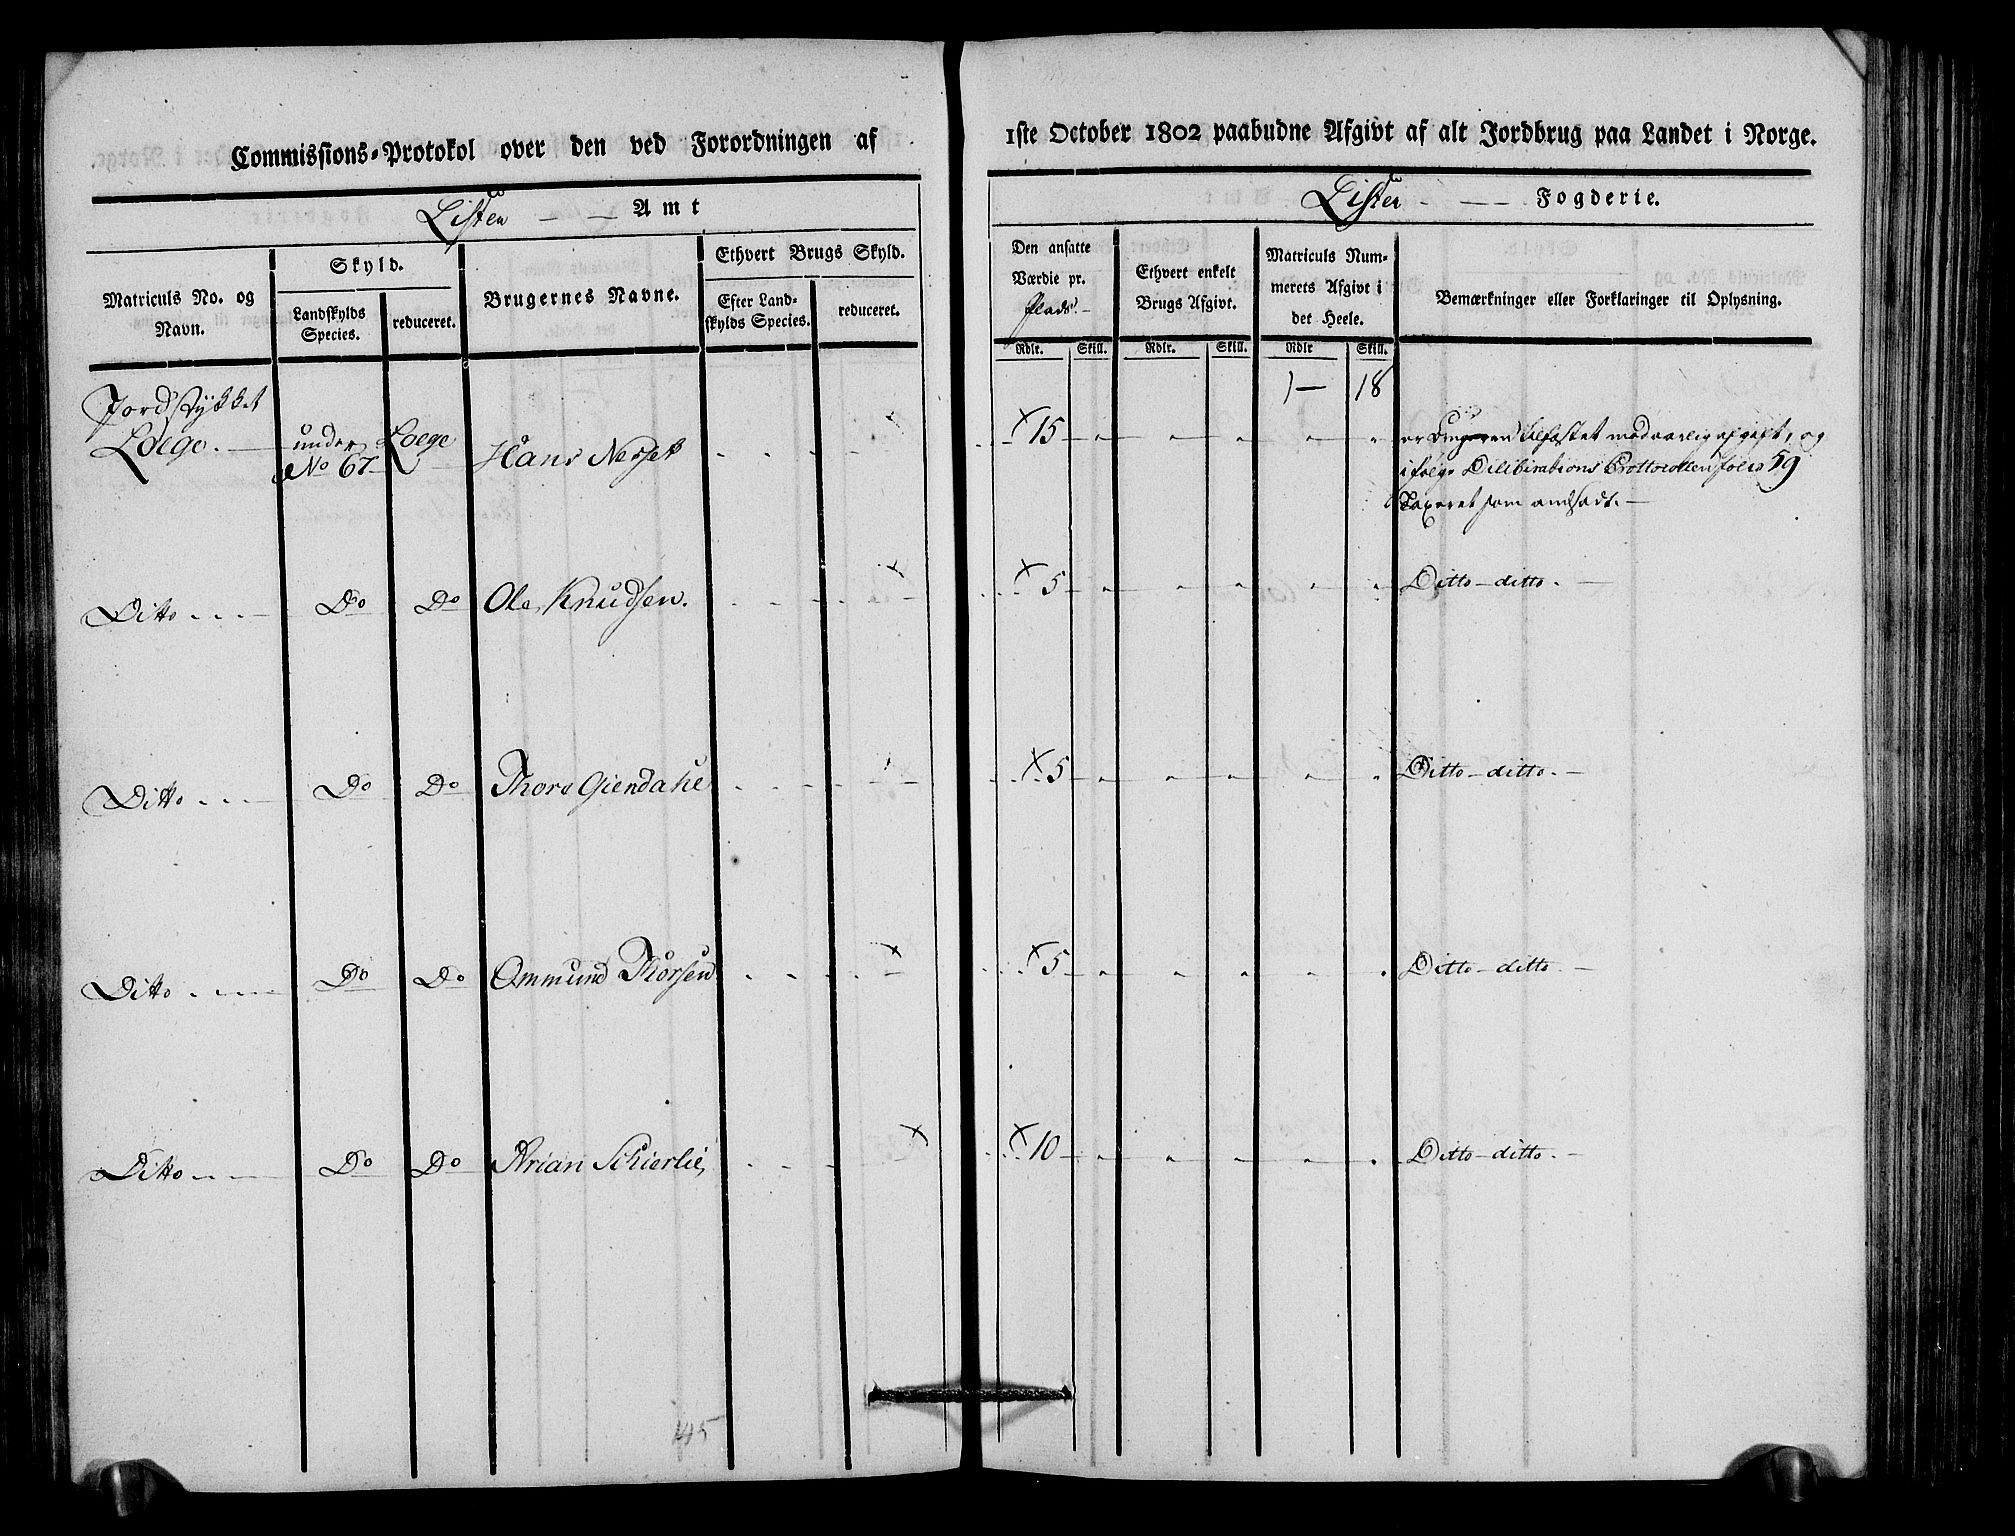 Commissions-Protokol over den ved Forordningen af
Listers Amt
Matriculs No. og Navn.
Skyld.
Landskylds Species.
reduceret.
Brugernes Navne.
Ethvert Brugs Skyld.
Efter Land-
skylds Species.
reduceret.
Jordstykket
Loege. under Loege Hans Nesset
No 67
Ditto Do Do Ole Knudsen.
Ditto Do Do Thore Giendahl
Ditto Do Do Ommund Thorsen
Ditto Do Do Arian Schierlie,
145
1ste October 1802 paabudne Afgivt af alt Jordbrug paa Landet i Norge.
Lister Fogderie.
Den ansatte
Værdie pr.
Plads.
Ethvert enkelt
Brugs Afgivt.
Matriculs Num-
merets Afgivt i
det Heele.
Bemærkninger eller Forklaringer til Oplysning.
Rdlr. Skill. Rdlr. Skill. Rdlr Skill.
1 18
× 15 er Brugeren tilfæstet mod aarlig afgift, og
i følge Dilibirations Prottocollen folio 59
Taxeret som andsadt.
× 5 Ditto ditto.
× 5 Ditto ditto.
× 5 Ditto ditto.
× 10 Ditto ditto.